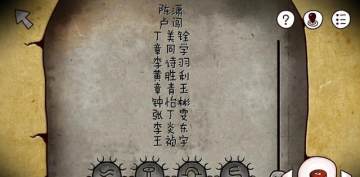 陈潇
卢闯
丁美铨
章同学
李诗羽
黄胜利
章青玉
钟怡彬
张丁雯
李炎东
王袧宇
?